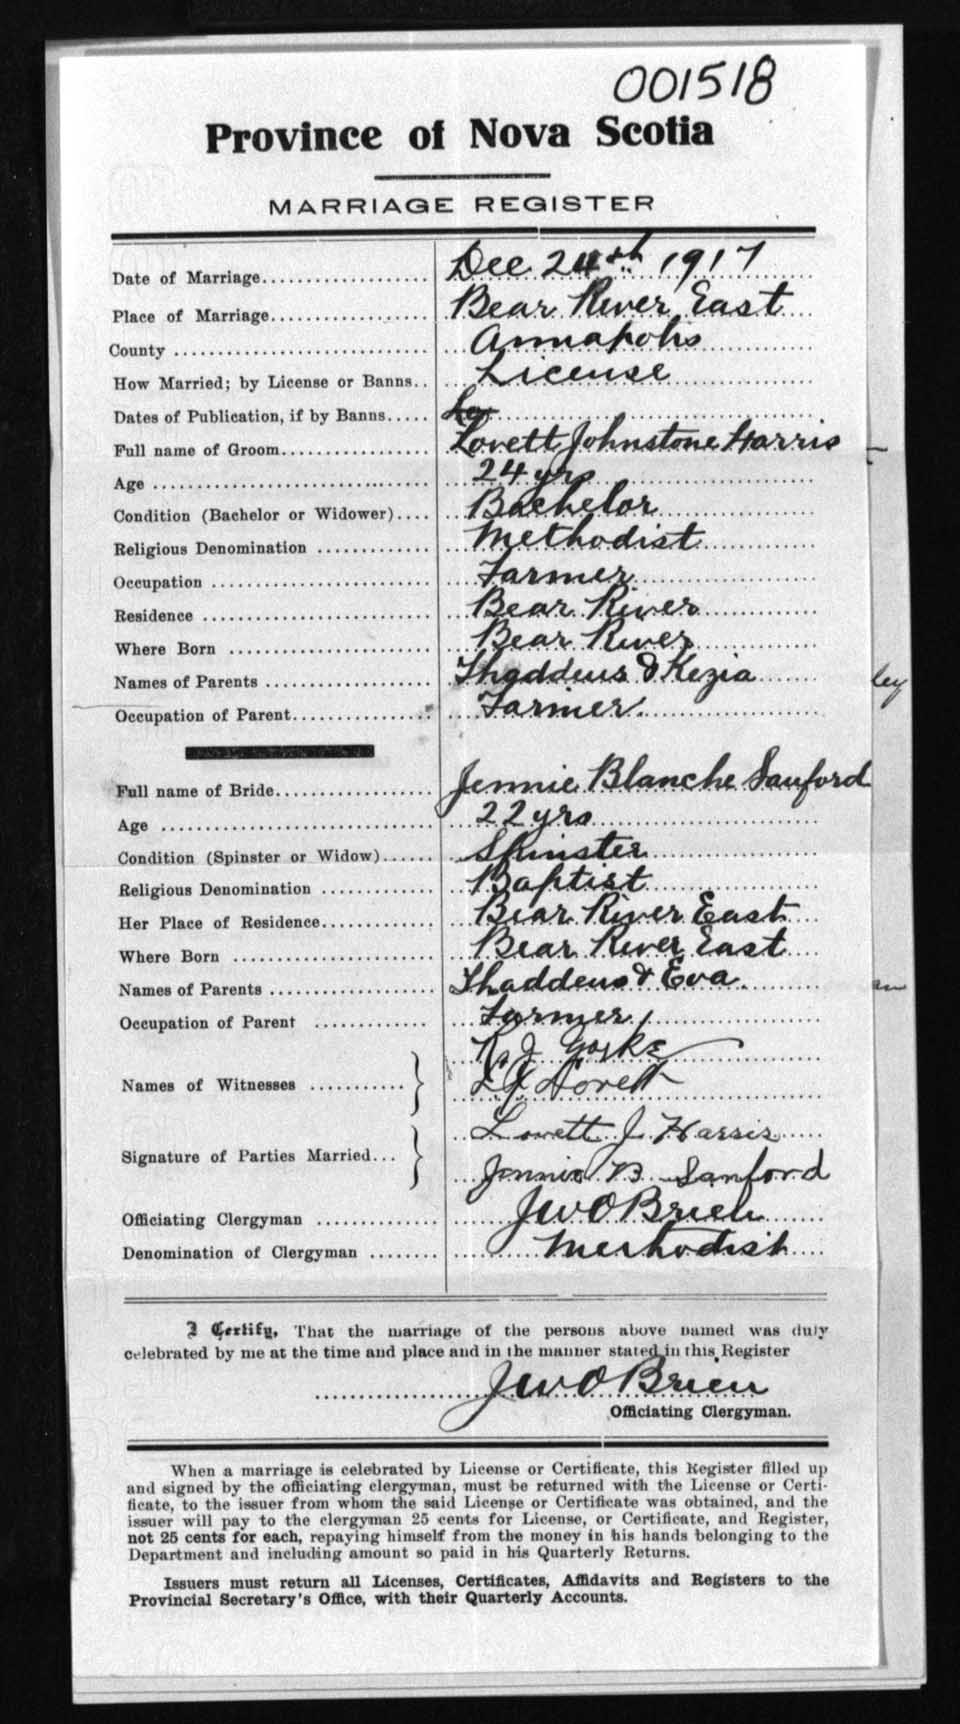 001518
Province of Nova Scotia
MARRIAGE REGISTER
Date of Marriage.................... Dec 24th 1917
Place of Marriage................... Bear River East
County ............................. Annapolis
How Married; by License or Banns.. License
Dates of Publication, if by Banns.....
Full name of Groom.................. Lovett Johnstone Harris
Age ................................ 24 yrs
Condition (Bachelor or Widower).... Bachelor
Religious Denomination ............. Methodist
Occupation ......................... Farmer
Residence .......................... Bear River
Where Born ......................... Bear River
Names of Parents ................... Thaddeus & Kezia
Occupation of Parent................ Farmer
Full name of Bride.................. Jennie Blanche Sanford
Age ................................ 22 yrs
Condition (Spinster or Widow)...... Spinster
Religious Denomination ............. Baptist
Her Place of Residence.............. Bear River East
Where Born ......................... Bear River East
Names of Parents ................... Thaddeus & Eva
Occupation of Parent ............... Farmer
Names of Witnesses ........... R. J. Yorke
L J Lovett
Signature of Parties Married... Lovett J. Harris
Jennie B Sanford
Officiating Clergyman .............. JWOBrien
Denomination of Clergyman ........ Methodist
I Certify, That the marriage of the persons above named was duly
celebrated by me at the time and place and in the manner stated in this Register
JWOBrien
Officiating Clergyman.
When a marriage is celebrated by License or Certificate, this Register filled up
and signed by the officiating clergyman, must be returned with the License or Certi-
ficate, to the issuer from whom the said License or Certificate was obtained, and the
issuer will pay to the clergyman 25 cents for License, or Certificate, and Register,
not 25 cents for each, repaying himself from the money in his hands belonging to the
Department and including amount so paid in his Quarterly Returns.
Issuers must return all Licenses, Certificates, Affidavits and Registers to the
Provincial Secretary's Office, with their Quarterly Accounts.